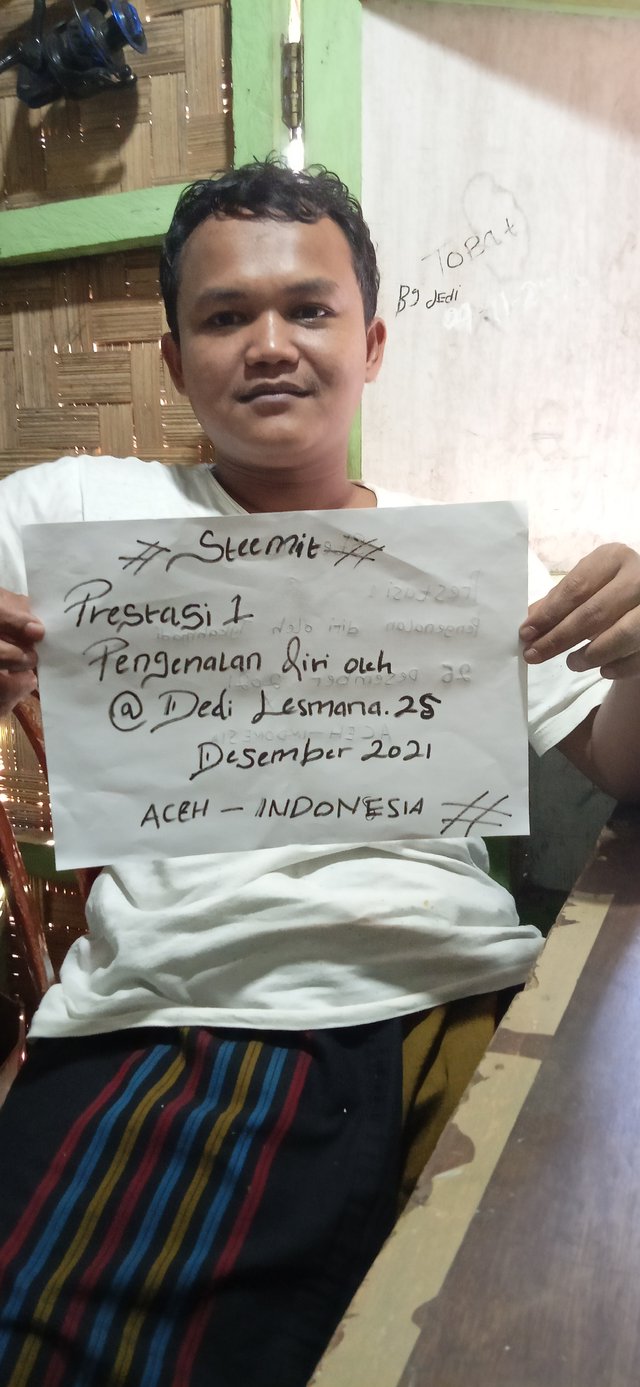 TOBAT
Bg dEdi
# Steemit #
Prestasi 1
Pengenalan diri oleh
@ Dedi Lesmana.25
Desember 2021
ACEH - INDONESIA #